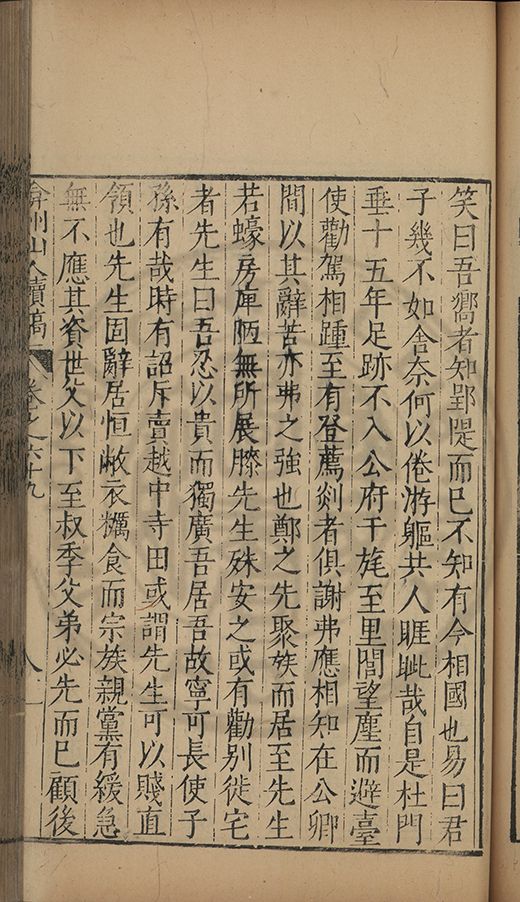 笑曰吾嚮者知郢隄而巳不知有今相國也易曰君
子幾不如舍奈何以倦游軀共人睚眦哉自是杜門
垂十五年足跡不入公府干旄至里閭望塵而避臺
使勸駕相踵至有登薦剡者俱謝弗應相知在公卿
間以其辭苦亦弗之強也鄭之先聚族而居至先生
若蠔房庳陋無所展膝先生殊安之或有勸別徙宅
者先生曰吾忍以貴而獨廣吾居吾故寧可長使子
孫有哉時有詔斥賣越中寺田或謂先生可以賤直
領也先生固辭居恒敝衣糲食而宗族親黨有緩急
無不應其資世父以下至叔季父弟必先而巳顧後
弇州山人續稿 卷之六十九 八